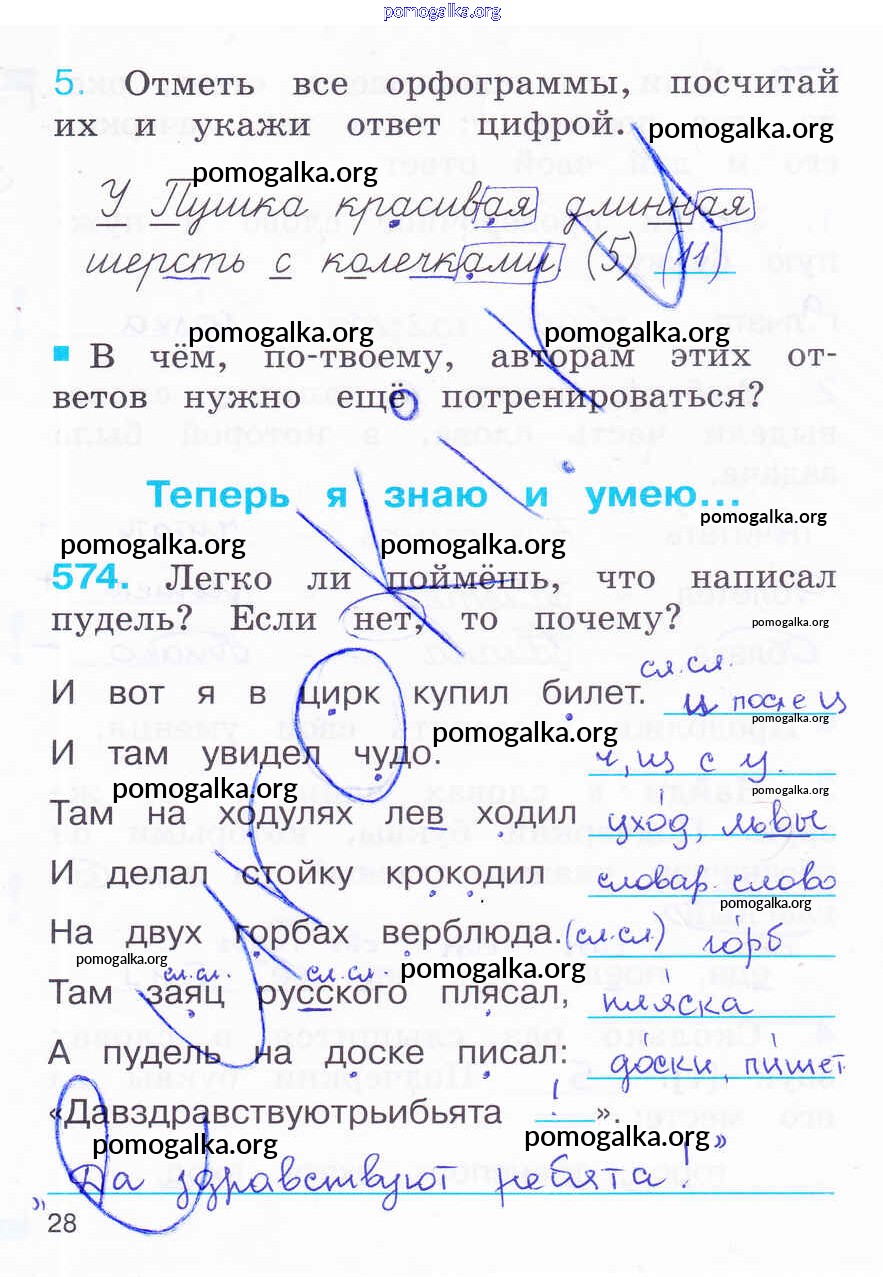 pomogalka.org
5. Отметь все орфограммы, посчитай
их и укажи ответ цифрой.
pomogalka.org
pomogalka.org
У Пушка красивая длинная
шерсть с колечками. (5) (11)
pomogalka.org pomogalka.org
В чём, по-твоему, авторам этих от-
ветов нужно ещё потренироваться?
Теперь я знаю и умею...
pomogalka.org
pomogalka.org pomogalka.org
574. Легко ли поймёшь, что написал
пудель? Если нет, то почему?
pomogalka.org
сл.сл.
И вот я в цирк купил билет. и после ц
pomogalka.org
pomogalka.org
И там увидел чудо. ч, из с у.
pomogalka.org pomogalka.org
Там на ходулях лев ходил уход, львы
И делал стойку крокодил словар. слово
pomogalka.org
На двух горбах верблюда. (сл.сл) горб
pomogalka.org сл.сл. сл.сл. pomogalka.org
Там заяц русского плясал, пляска
А пудель на доске писал: доски, пишет
«Давздравствуютрыибьята ! ».
pomogalka.org pomogalka.org
„Да здравствуют ребята!"
28